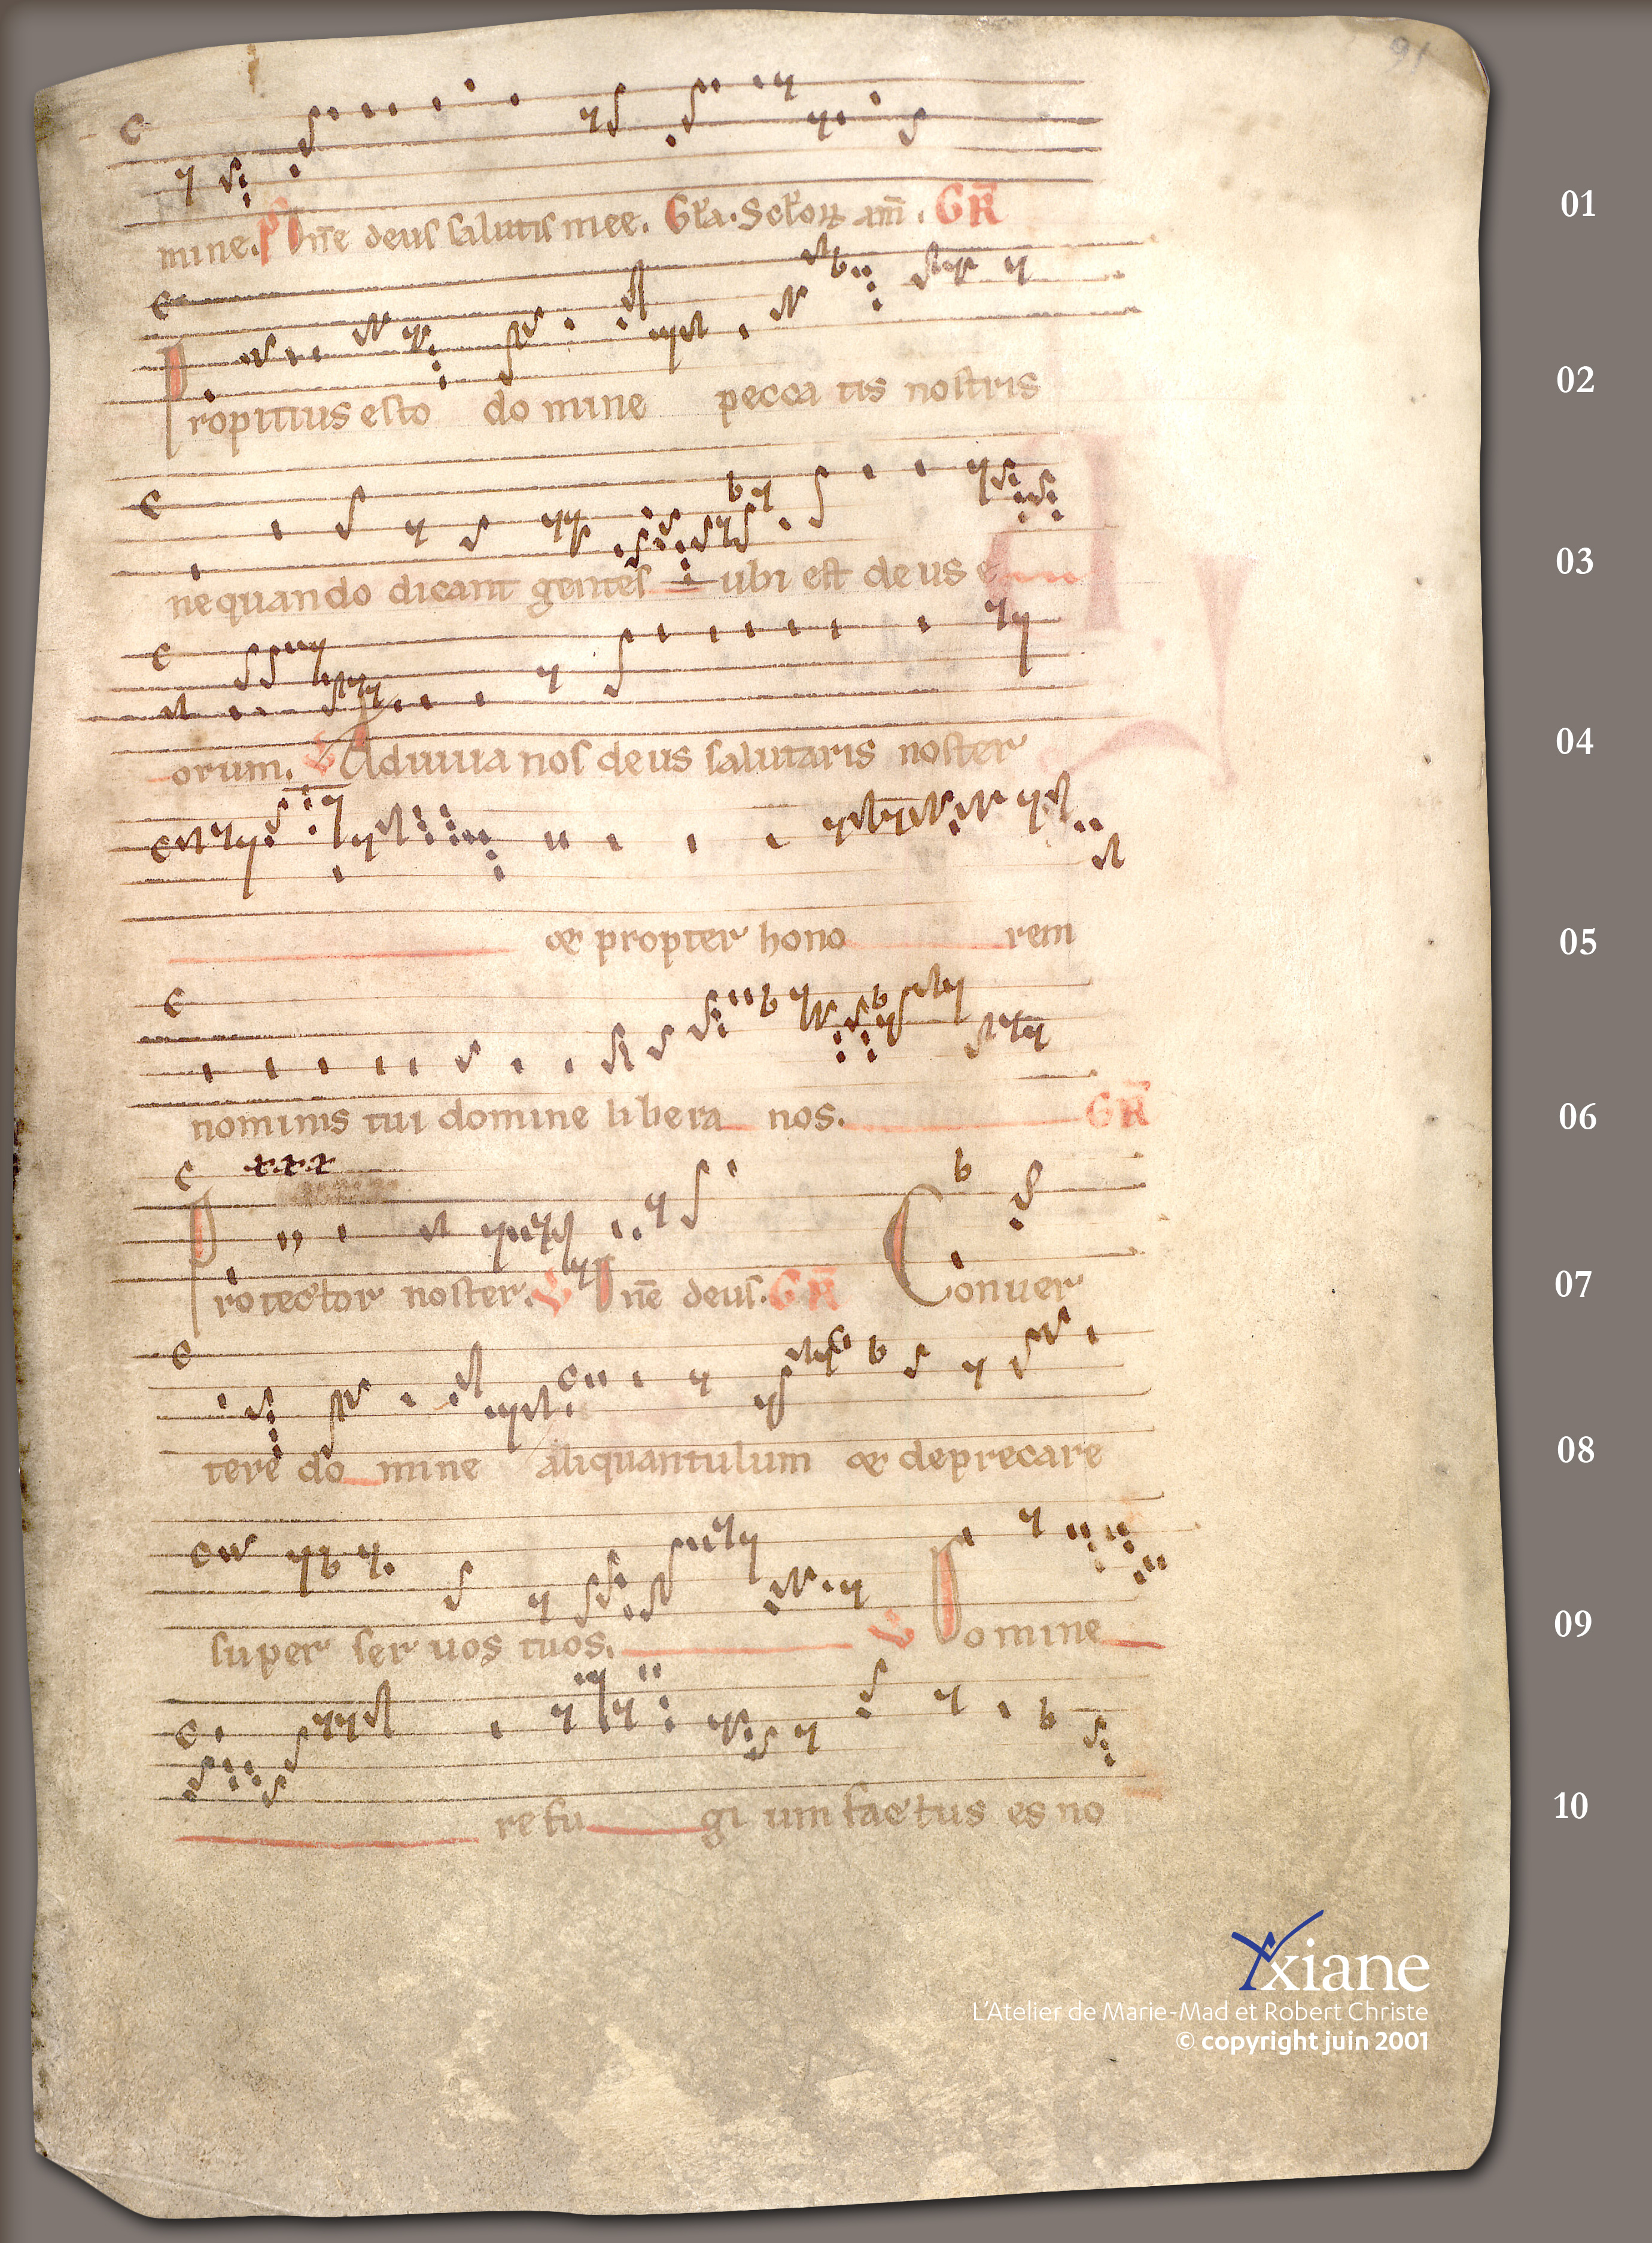 91
mine. Ps Dñe deus salutis mee. Gła. Scłoꝝ am̅. GR̅
01
Propitius esto do mine pecca tis nostris
02
nequando dicant gentes ubi est deus e
03
orum. V Adiuua nos deus salutaris noster
04
& propter hono rem
05
nominis tui domine libera nos. GR̅
06
xxx
Protector noster. V Dñe deus. GR̅ Conuer
07
tere do mine aliquantulum & deprecare
08
super ser uos tuos. V Domine
09
refu gi um factus es no
10
Yxiane
L'Atelier de Marie-Mad et Robert Christe
© copyright juin 2001